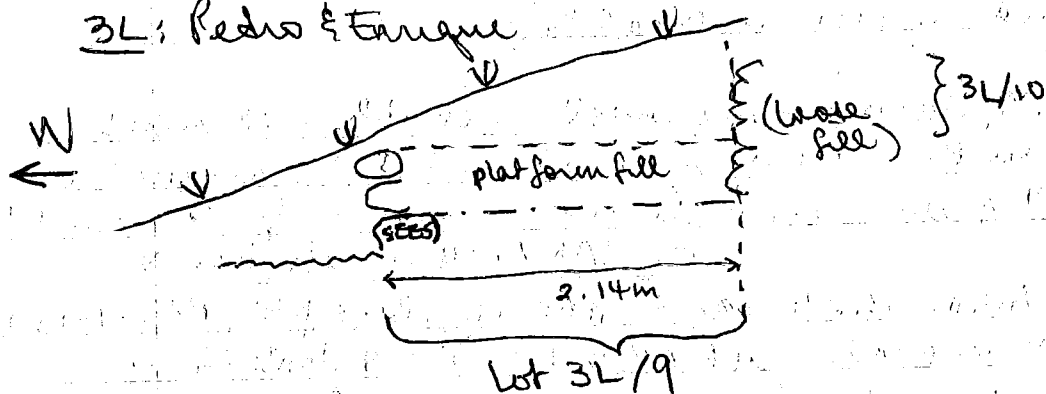 3L: Pedro & Enrique
N
(loose
fill)
3L/10
platform fill
2.14m
Lot 3L/9